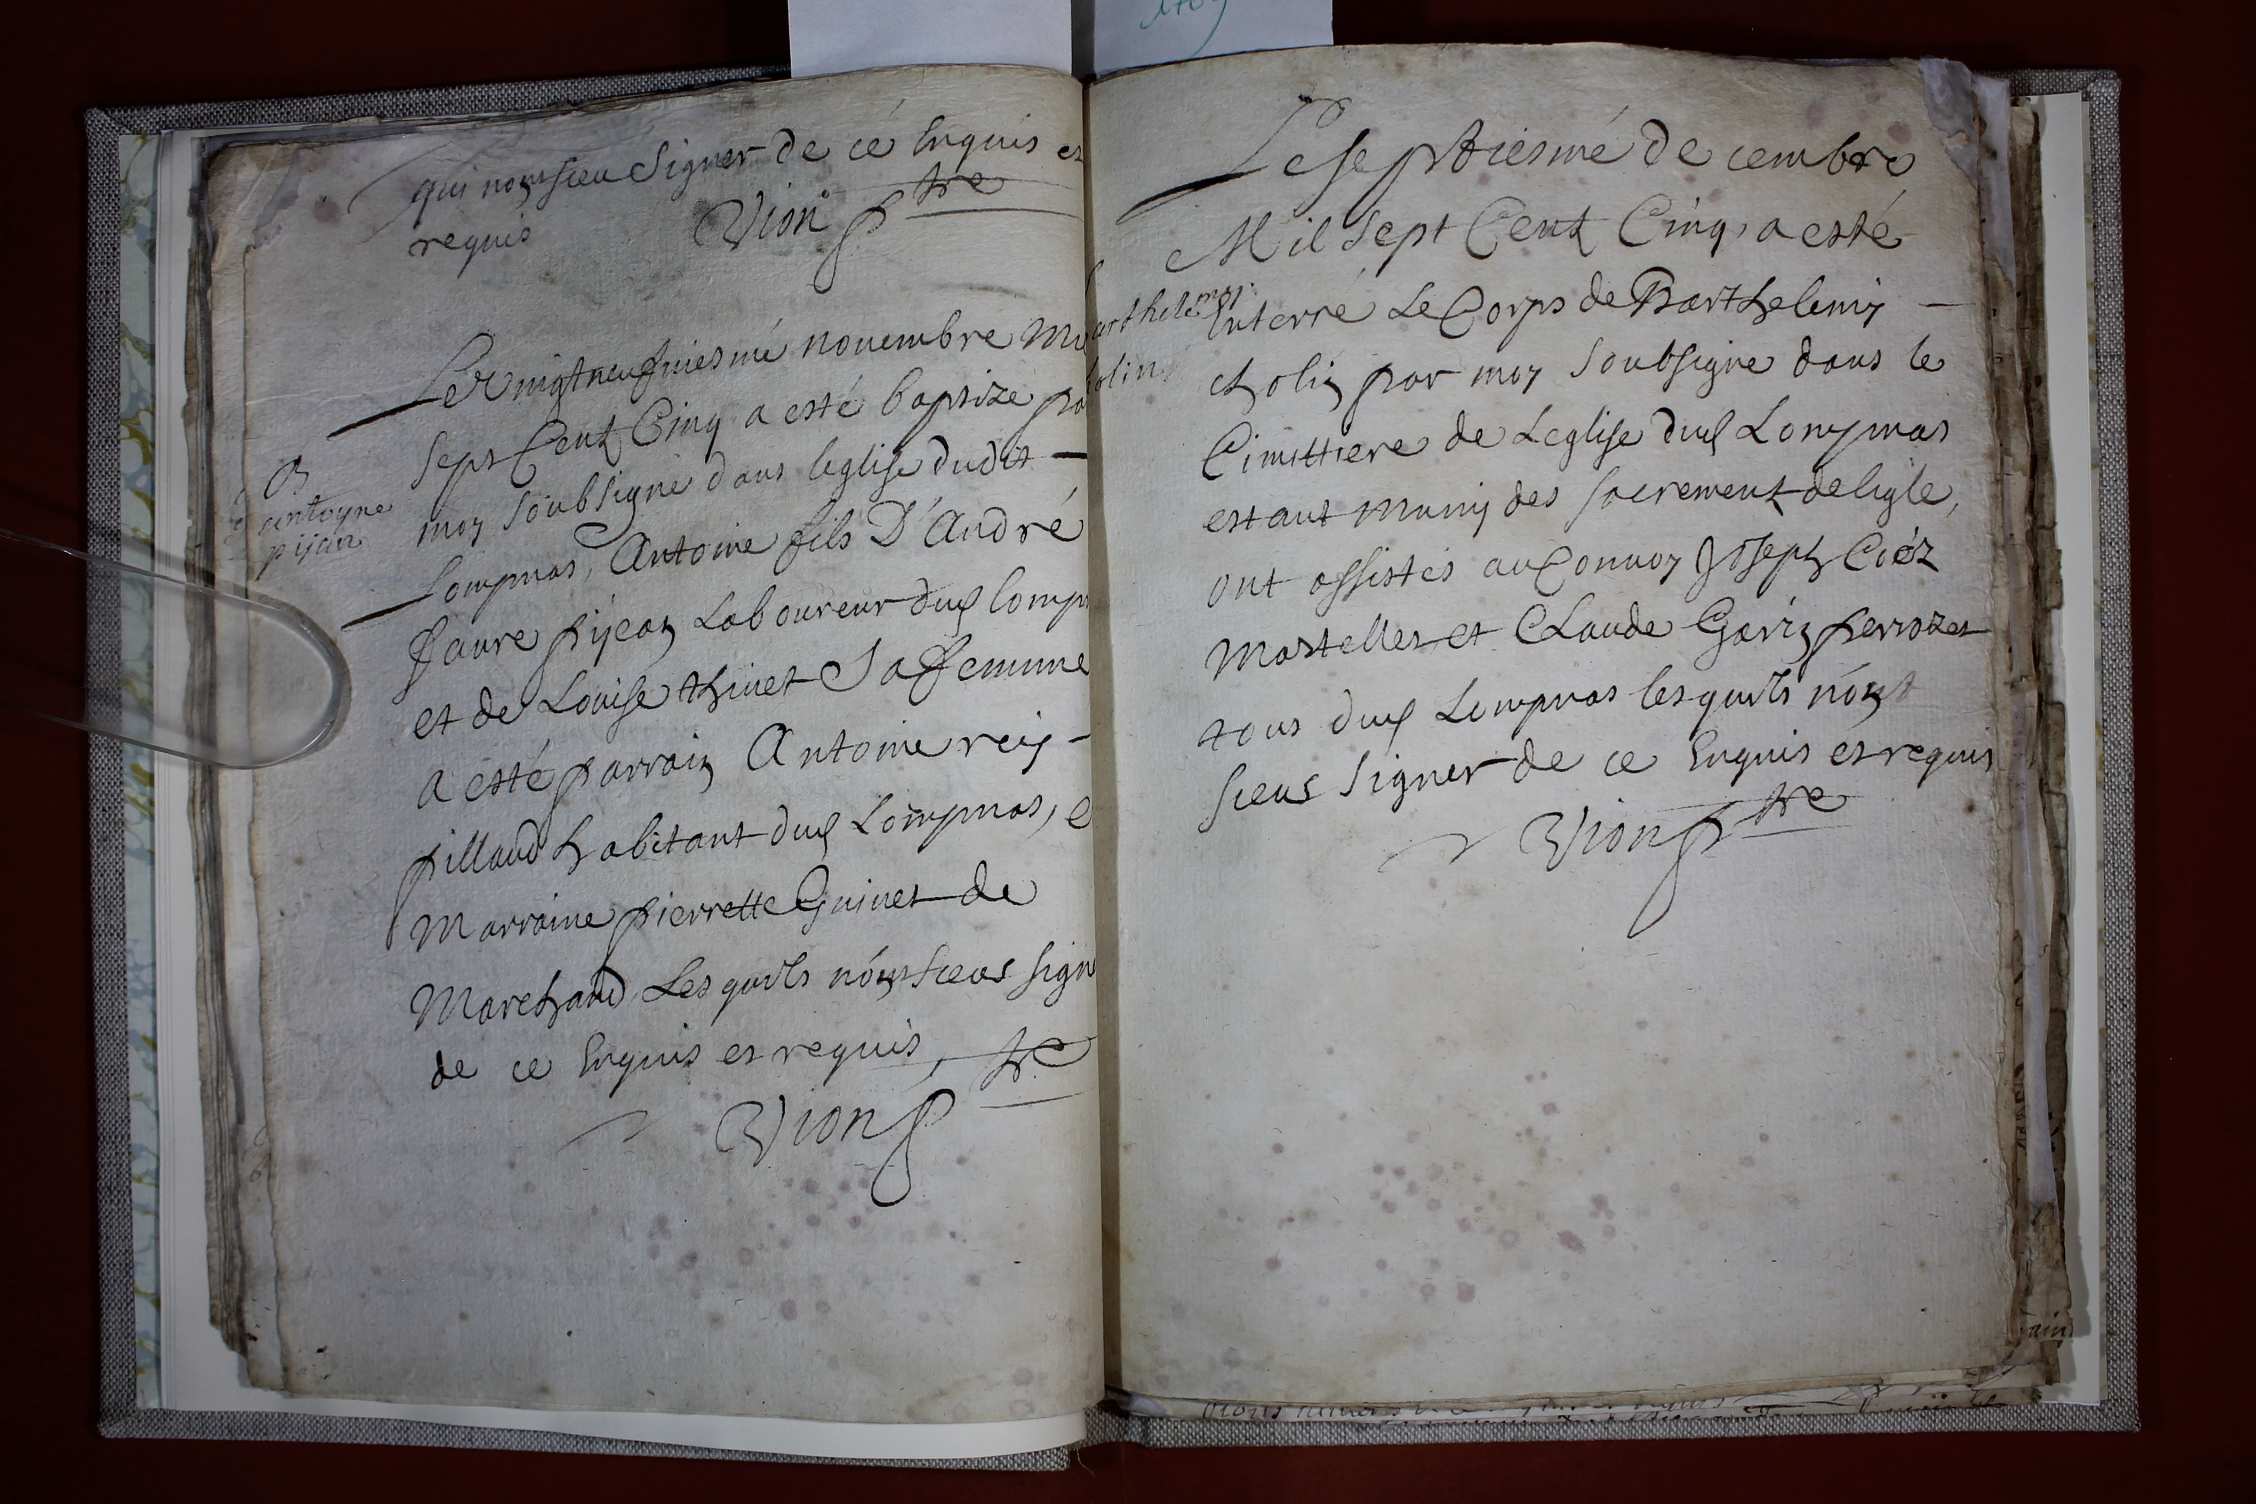 1705
qui nont sceu Signer de cé Enquis et
requis
Vion ptre
Le Vingtneufuiesmé nouembre Mil
Sept Cent Cinq a esté baptize par
moy Soubsigné dans leglise dudit
B
antoyne
pijan
Lompnas, Antoine fils D'André
faure pijean Laboureur dud lompn
et de Louise thinet Sa femme
a esté parrain Antoine rey
pilland habitant dud Lompnas, e
Marraine pierrette Guinet de
Marchand Les quels nónt sceus sign
de ce Enquis et requis,
Vion ptre
Le septiesmé decembre
Mil Sept Cent Cinq, a esté
arthelemy
olin
Enterré Le Corps de Barthelemy
cholin par moy Soubsigne dans le
Cimittiere de Leglise dud Lompnas
estant muny des sacrement deligle,
ont assistés au Convoy Joseph
Martellet et Claude Garin perrozet
tous dud Lompnas lesquels nónt
sceus Signer de ce Enquis et requis
Vion ptre